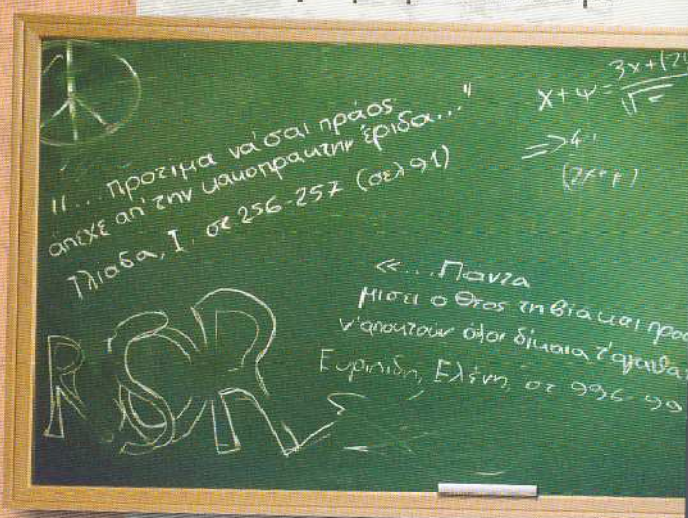 "... προτίμα νά'σαι πράος
άπεχε απ' την κακοπράκτην έριδα..."
Ιλιάδα, Ι. στ 256-257 (σελ 91)
x+ψ=
=>
«...Παντα
μισεί ο Θεος τη βία και
ν'αποκτούν όλοι δίκαια τ'αγαθά
Ευριπίδη, Ελένη, στ